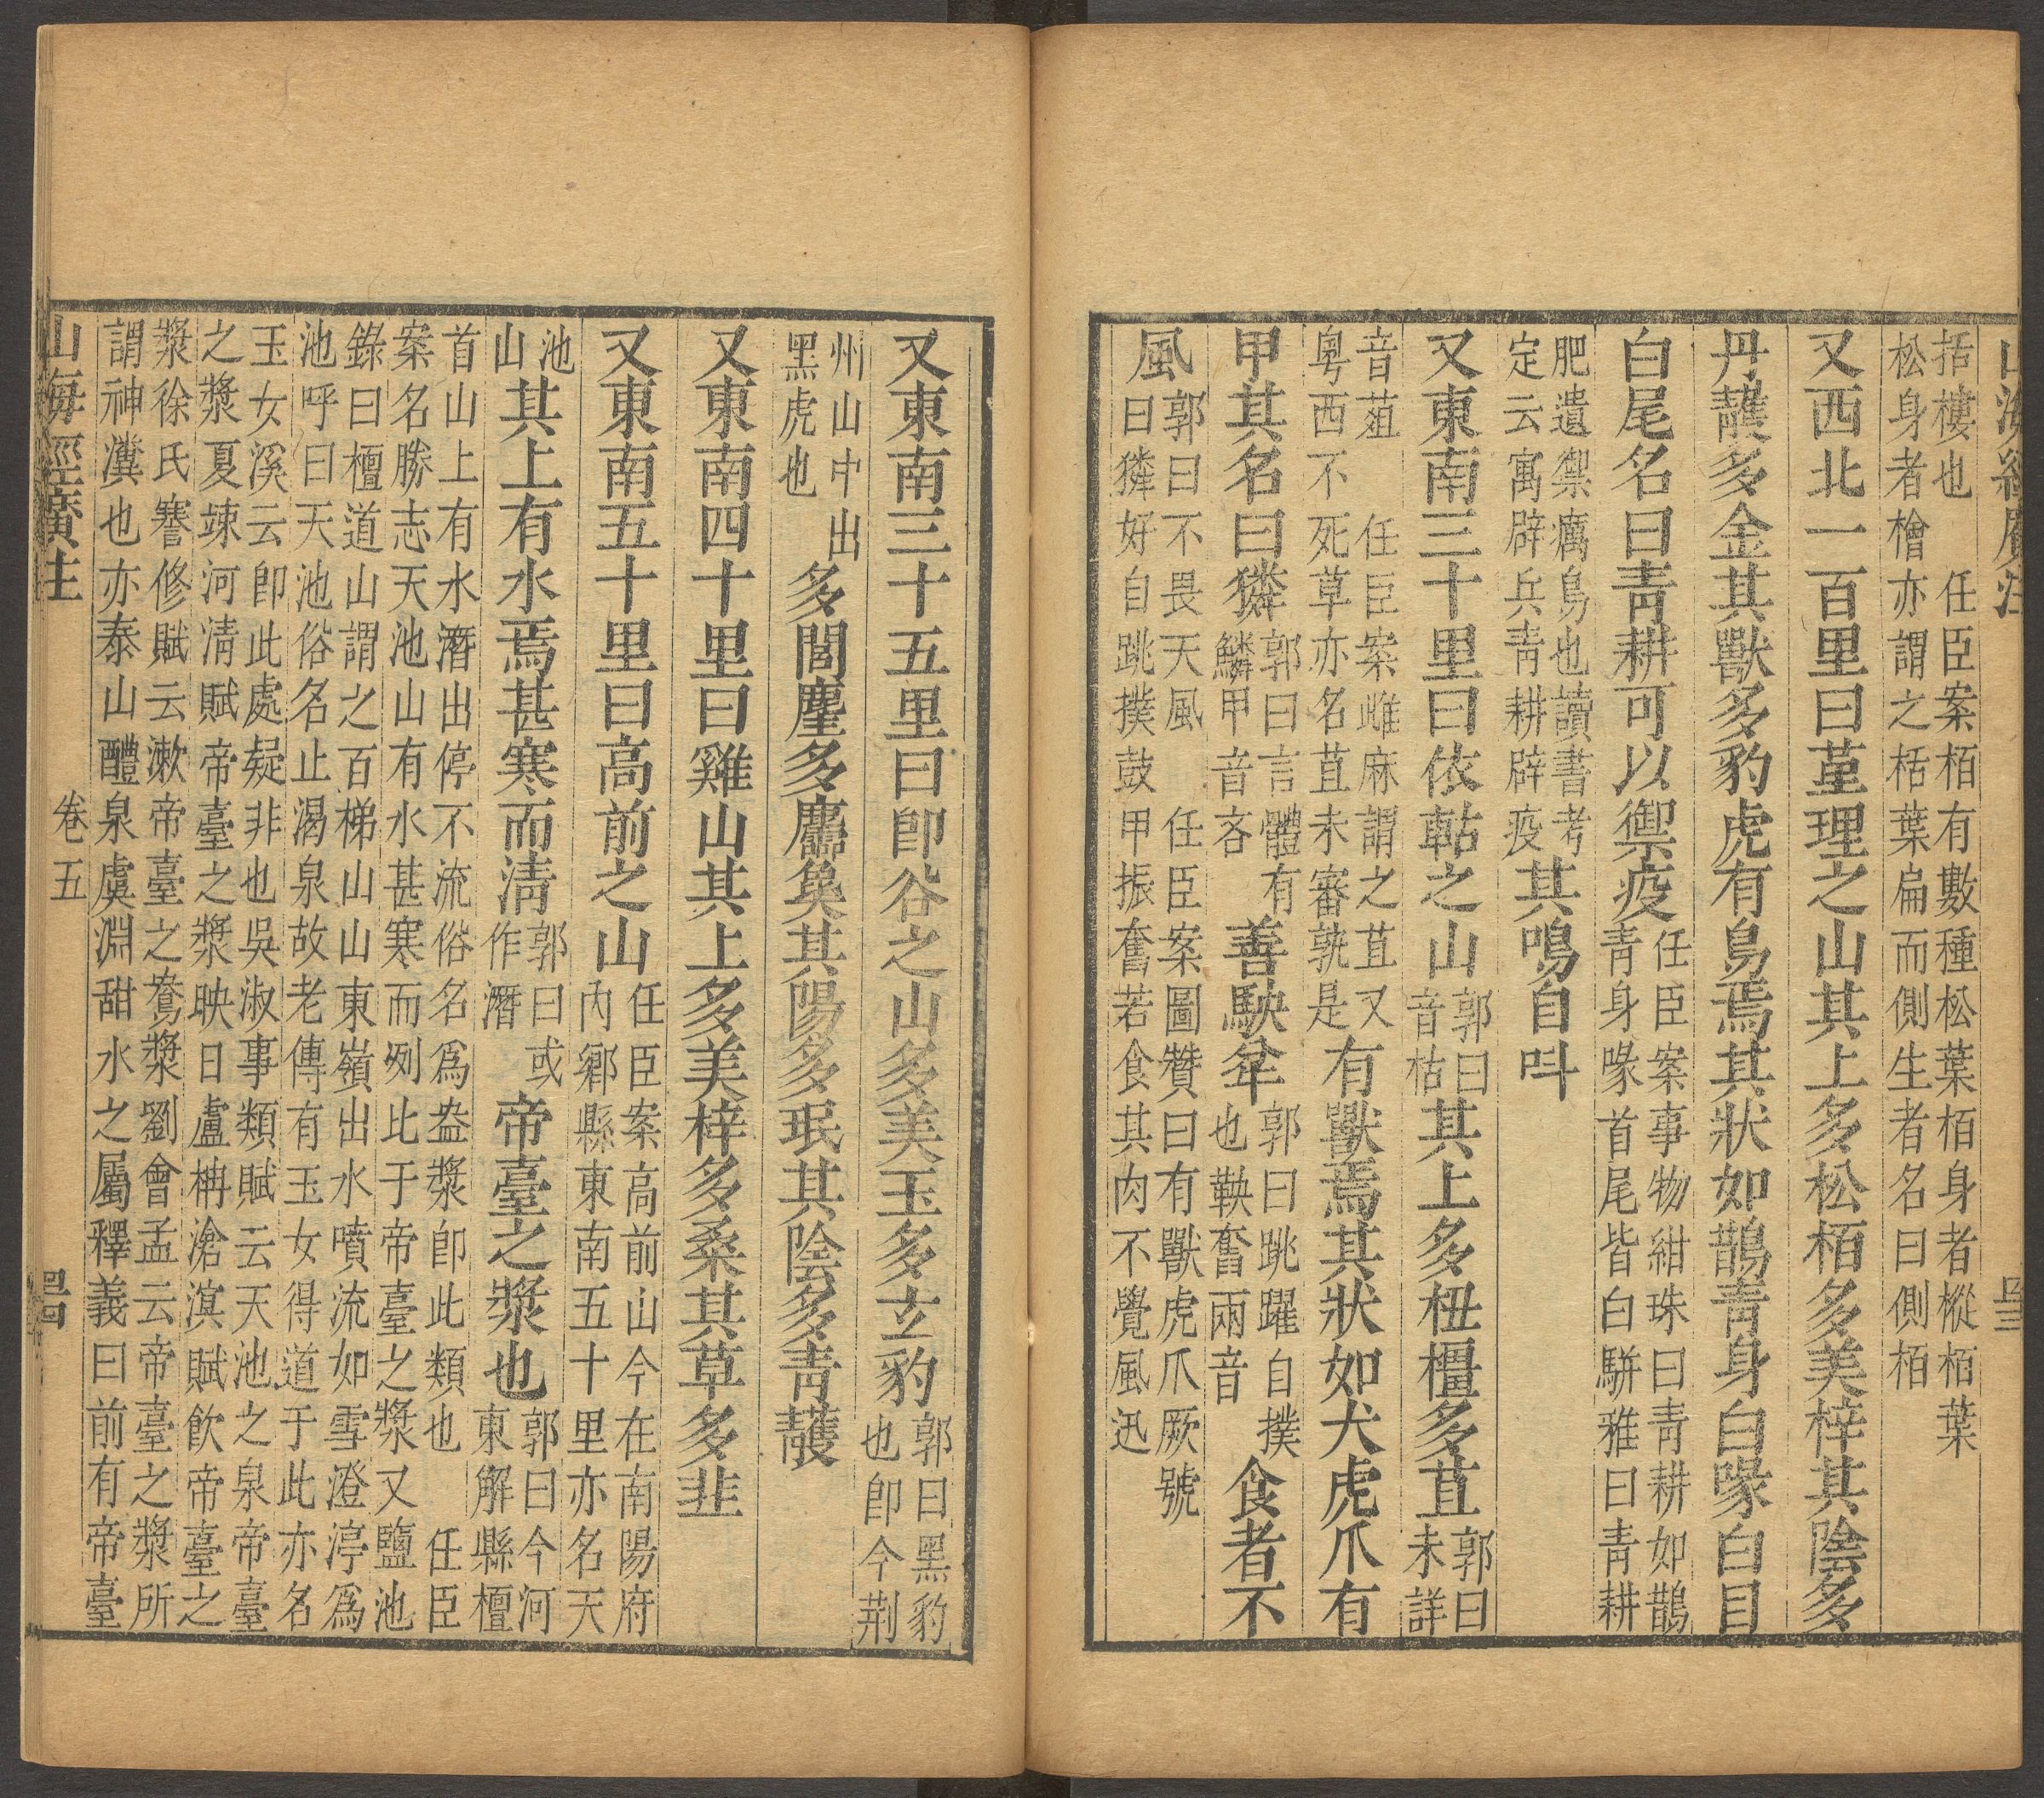 山海經廣注
四三
括樓也　任臣案栢有數種松葉栢身者樅栢葉
松身者檜亦謂之栝葉扁而側生者名曰側栢
又西北一百里曰堇理之山其上多松栢多美梓其陰多
丹雘多金其獸多豹虎有鳥焉其狀如鵲青身白喙白目
白尾名曰青耕可以禦疫
任臣案事物紺珠曰青耕如鵲
青身喙首尾皆白駢雅曰青耕
肥遺禦癘鳥也讀書考
定云寓辟兵青耕辟疫
其鳴自叫
又東南三十里曰依軲之山
郭曰
音枯
其上多杻橿多苴
郭曰
未詳
音葅　任臣案雌麻謂之苴又
粵西不死草亦名苴未審孰是
有獸焉其狀如犬虎爪有
甲其名曰獜
郭曰言體有
鱗甲音吝
善駚坌
郭曰跳躍自撲
也鞅奮兩音
食者不
風
郭曰不畏天風　任臣案圖贊曰有獸虎爪厥號
曰獜好自跳撲鼓甲振奮若食其肉不覺風迅
又東南三十五里曰卽谷之山多美玉多玄豹
郭曰黑豹
也卽今荆
州山中出
黑虎也
多閭麈多麢㚟其陽多珉其陰多青雘
又東南四十里曰雞山其上多美梓多桑其草多韭
又東南五十里曰高前之山
任臣案高前山今在南陽府
內鄉縣東南五十里亦名天
池
山
其上有水焉甚寒而清
郭曰或
作潛
帝臺之漿也
郭曰今河
東解縣檀
首山上有水潛出停不流俗名爲盎漿卽此類也　任臣
案名勝志天池山有水甚寒而冽比于帝臺之漿又鹽池
錄曰檀道山謂之百梯山山東嶺出水噴流如雪澄渟爲
池呼曰天池俗名止渴泉故老傳有玉女得道于此亦名
玉女溪云卽此處疑非也吳淑事類賦云天池之泉帝臺
之漿夏竦河清賦帝臺之漿映日盧柟滄溟賦飲帝臺之
漿徐氏謇修賦云漱帝臺之鴦漿劉會孟云帝臺之漿所
謂神瀵也亦泰山醴泉虞淵甜水之屬釋義曰前有帝臺
山海經廣注
卷五
四四